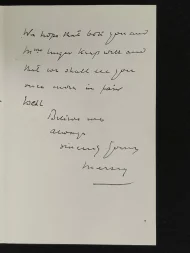 We hope that both you and
Mrs keep well and
that we shall see you
once more in fair
Believe me
always
sincerely yours
Mersey